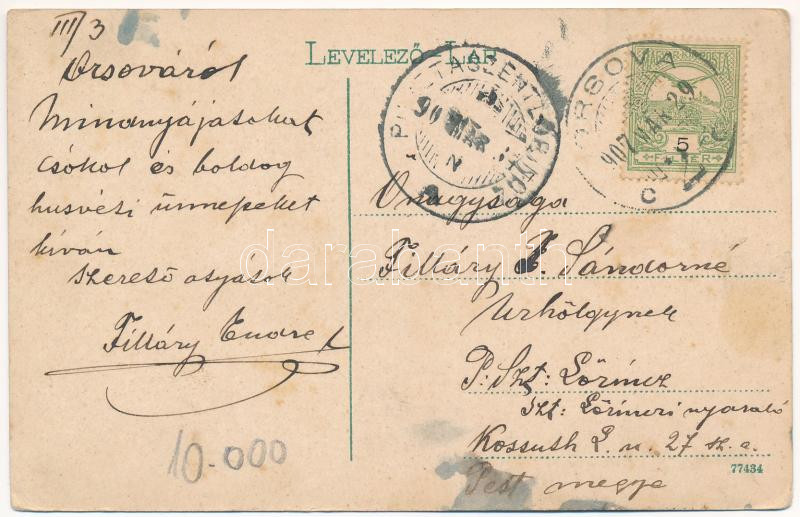 III/3
LEVELEZŐ-LAP
Orsováról
Mindnyájatokat
csókol és boldog
husvéti ünnepeket
kíván
szerető atyátok
Filláry Endre
10.000
PUSZTASZENTLŐRINC
907 MÁR
N
ORSOVA
907 MÁR 29
C
5
FILLÉR
Őnagysága
Filláry F. Sándorné
Urhölgynek
P: Szt: Lőrincz
Szt: Lőrinczi nyaraló
Kossuth L. u. 27 sz. a.
Pest megye
77434
darabanth